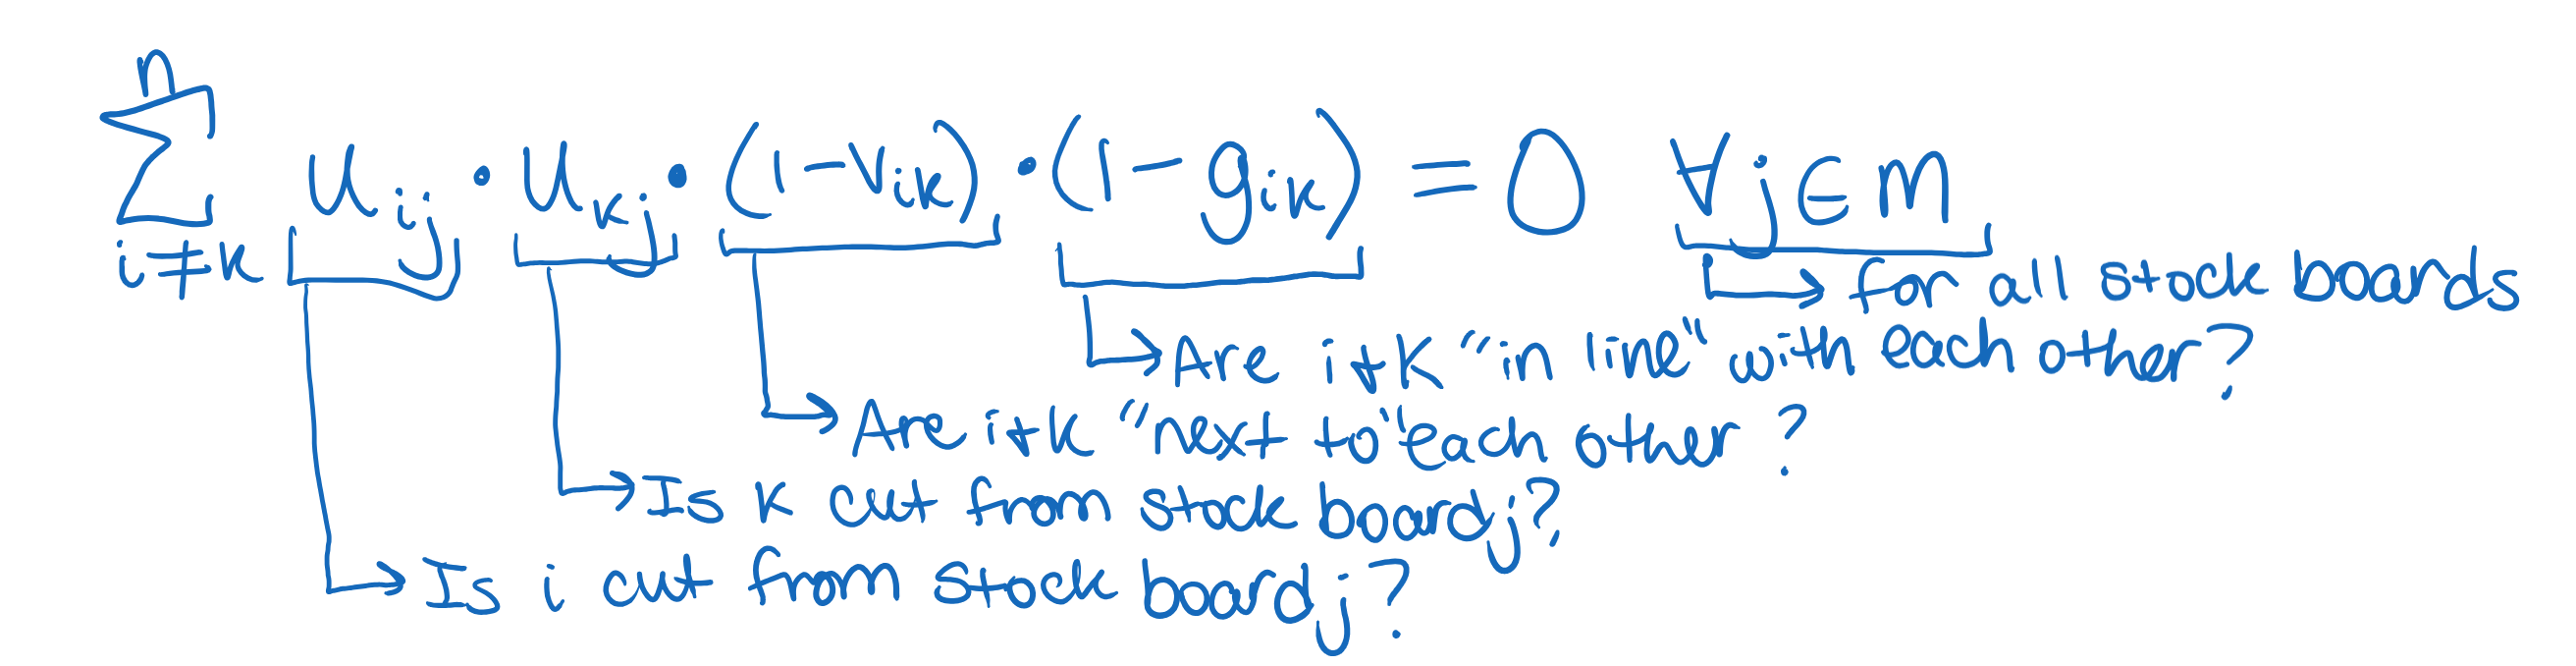 n
∑ u_ij · u_kj · (1-v_ik) · (1-g_ik) = 0 ∀j∈m
i≠k
for all stock boards
Are i+k "in line" with each other?
Are i+k "next to" each other?
Is k cut from stock board j?
Is i cut from stock board j?